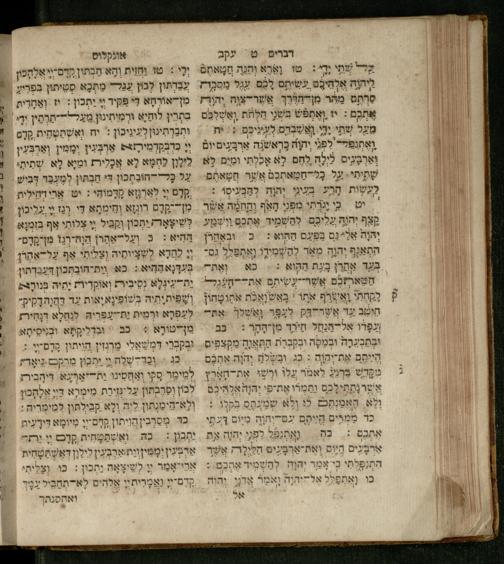 דברים ט עקב
אונקלוס
על שתי ידי : טז וארא והנה חטאתם
ליהוה אלהיכם עשיתם לכם עגל מסכה
סרתם מהר מן הדרך אשר צוה יהוה
אתכם : יז ואתפש בשני הלחת ואשלכם
מעל שתי ידי ואשברם לעיניכם : יח
ואתנפל לפני יהוה כראשנה ארבעים יום
וארבעים לילה לחם לא אכלתי ומים לא
שתיתי על כל חטאתכם אשר חטאתם
לעשות הרע בעיני יהוה להכעיסו :
יט כי יגרתי מפני האף והחמה אשר
קצף יהוה עליכם להשמיד אתכם וישמע
יהוה אלי גם בפעם ההוא : כ ובאהרן
התאנף יהוה מאד להשמידו ואתפלל גם
בעד אהרן בעת ההוא : כא ואת
חטאתכם אשר עשיתם את העגל
לקחתי ואשרף אתו באש ואכת אתו טחון
היטב עד אשר דק לעפר ואשלך את
עפרו אל הנחל הירד מן ההר : כב
ובתבערה ובמסה ובקברת התאוה מקצפים
הייתם את יהוה : כג ובשלח יהוה אתכם
מקדש ברנע לאמר עלו ורשו את הארץ
אשר נתתי לכם ותמרו את פי יהוה אלהיכם
ולא האמנתם לו ולא שמעתם בקלו :
כד ממרים הייתם עם יהוה מיום דעתי
אתכם : כה ואתנפל לפני יהוה את
ארבעים היום ואת ארבעים הלילה אשר
התנפלתי כי אמר יהוה להשמיד אתכם :
כו ואתפלל אל יהוה ואמר אדני יהוה
אל
ידי : טז וחזית והא חבתון קדם יי אלהכון
עבדתון לכון עגל מתכא סטיתון בפריע
מן אורחא די פקיד יי יתכון : יז ואחדית
בתרין לוחיא ורמיתינון מעל תרתין ידי
ותברתינון לעיניכון : יח ואשתטחית קדם
יי כדבקדמיתא ארבעין יממין וארבעין
לילון לחמא לא אכלית ומיא לא שתיתי
על כל חובתכון די חבתון למעבד דביש
קדם יי לארגזא קדמוהי : יט ארי דחילית
מן קדם רוגזא וחימתא די רגז יי עליכון
לשיצאה יתכון וקביל יי צלותי אף בזמנא
ההיא : כ ועל אהרן הוה רגז מן קדם
יי לחדא לשציותיה וצליתי אף על אהרן
בעדנא ההיא : כא וית חובתכון דעבדתון
ית עיגלא נסיבית ואוקדית יתיה בנורא
ושפית יתיה בשופינא יאות עד דהוה דקיק
לעפרא ורמית ית עפריה לנחלא דנחית
מן טורא : כב ובדליקתא ובנסיתא
ובקברי דמשאלי מרגזין הויתון קדם יי :
כג וכד שלח יי יתכון מרקם גיאה
למימר סקו ואחסינו ית ארעא די יהבית
לכון וסרבתון על גזירת מימרא דיי אלהכון
ולא הימנתון ליה ולא קבילתון למימריה :
כד מסרבין הויתון קדם יי מיומא דידעית
יתכון : כה ואשתטחית קדם יי ית
ארבעין יממין וית ארבעין לילון דאשתטחית
ארי אמר יי לשיצאה יתכון : כו וצליתי
קדם יי ואמרית יי אלהים לא תחביל עמך
ואחסנתך